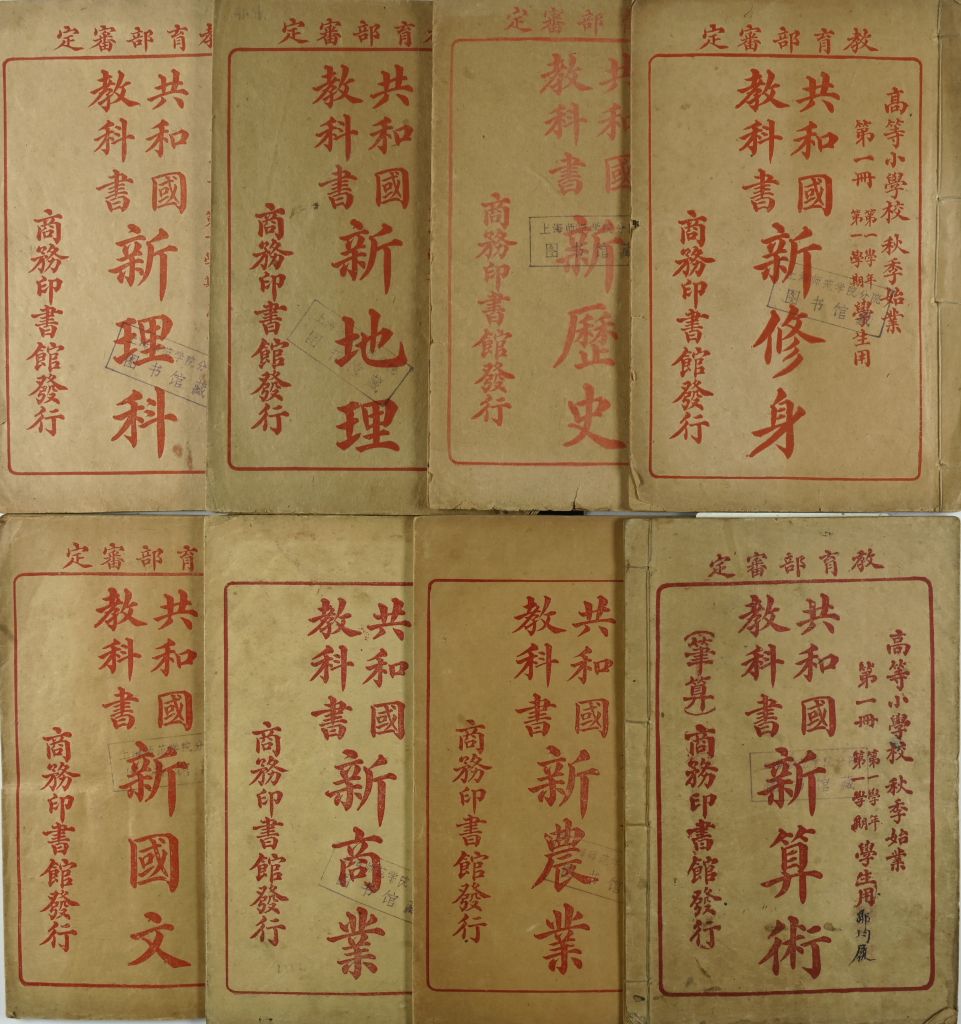 教育部審定
共和國
教科書
新理科
商務印書館發行
图书馆藏
育部審定
共和國
教科書
新地理
商務印書館發行
部審定
共和國
教科書
新歷史
商務印書館發行
上海师范学院分
图书馆藏
教育部審定
高等小學校 秋季始業
第一冊 第一學年 第一學期 學生用
共和國
教科書
新修身
商務印書館發行
师范学院分院
图书馆藏
育部審定
共和國
教科書
新國文
商務印書館發行
共和國
教科書
新商業
商務印書館發行
书馆藏
共和國
教科書
新農業
商務印書館發行
教育部審定
高等小學校 秋季始業
第一冊 第一學年 第一學期 學生用
共和國
教科書
新算術
(筆算)
商務印書館發行